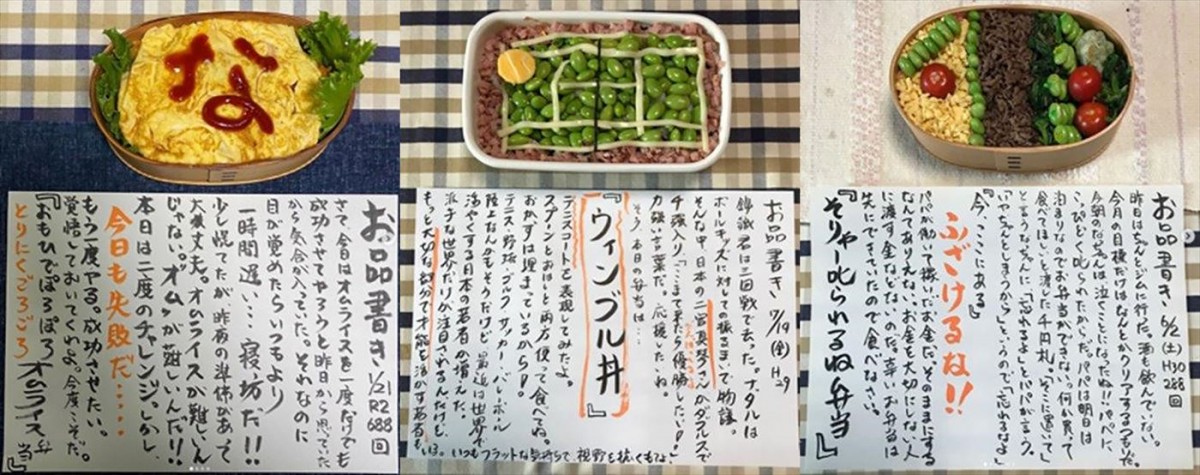 な
お品書き 1/21 R2 688回
さて、今日はオムライスを一度だけでも
成功させてやろうと昨日から思ってい
たから気合が入っていた。それなのに
目が覚めたらいつもより
一時間遅い…寝坊だ!!
少し慌てたが、昨夜の準備があって
大丈夫。オムライスが難しいん
じゃない。"オム"が難しいんだ!!
本日は二度のチャレンジ。しかし、
今日も失敗だ……
もう一度やる。成功させたい。
覚悟しておいてくれよ。今度こそだ。
とりにくごろごろ
『おもひでぽろぽろオムライス弁当』
お品書き 7/14(金) H29
錦織君は三回戦で去った。ナダルは
ボールキッズに対しての振るまいで物議。
そんな中、日本の二宮真琴さんがダブルスで
4強入り。「ここまで来たら優勝したい」
力強い言葉だ。応援したいね。
そう、本日の弁当は…
『ウィンブル丼』
テニスコートを表現してみたよ。
スプーンとおはしと両方使って食べてね。
おかずは埋まっているからD!
テニス・野球・ゴルフ・サッカー・バレーボール
陸上なんかもそうだけど、最近は世界で
活やくする日本の若者が増えた。
派手な世界だけが注目されてるんだけど、
もっと大切な部分で才能を活かす若者も
いる。いつもフラットな気持ちで、視野を拡くもて。
お品書き 6/2(土) H30 288回
昨日はちゃんとジムに行った。酒も飲んでない。
今月の目標だけはなんとかクリアするつもりだ。
今朝のなーちゃんは泣くことになったね!!パパに
こっぴどく叱られたからだ。パパは明日は
泊まりなのでお弁当ができない。何か買って
食べてほしいと渡した千円札。「そこに置いて
いっちゃうとどっかいっちゃうから」というので「忘れるなよ」
とるうなちゃんに「忘れるよ」とパパが言う。
「今、ここにある」
ふざけるな!!
パパが働いて稼いだお金だ。そのままにする
なんてありえない。お金を大切にしない人
に渡す金などないのだ。辛いお弁当は
先にできていたので食べなさい。
『そりゃー叱られるね弁当』